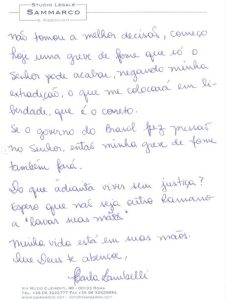 STUDIO LEGALE
SAMMARCO
E ASSOCIATI
não tomou a melhor decisão, começo
hoje uma greve de fome que só o
Senhor pode acabar, negando minha
extradição, o que me colocará em li-
berdade, que é o correto.
Se o governo do Brasil fez pressão
no Senhor, então minha greve de fome
também fará.
Do que adianta viver sem justiça?
Espero que não seja outro Romano
a "lavar suas mãos"
Minha vida está em suas mãos.
Que Deus te abençoe,
Carla Zambelli
VIA MUZIO CLEMENTI, 48 - 00193 ROMA